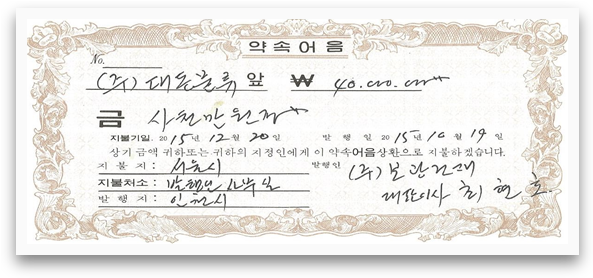 약속어음
No.
(주)대동물류 앞 ₩ 40.000.000
금 사천만원정
지불기일 2015년 12월 20일 발행일 2015년 10월 19일
상기 금액 귀하또는 귀하의 지정인에게 이 약속어음상환으로 지불하겠습니다.
지불지: 서울시 발행인 (주)보관건재
지불처소: 발행인 사무실 대표이사 최현호
발행지: 인천시